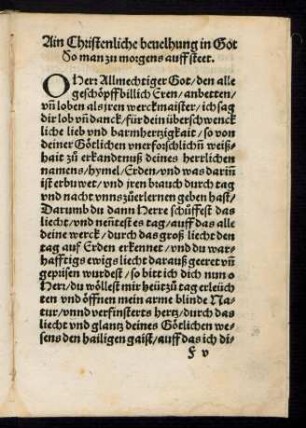 Ain Christenliche beuelhung in Got
So man zu morgens auff steet.
O Herr Allmechtiger Got / den alle
geschöpff billich Eren / anbetten /
vn̄ loben als jren werckmaister / ich sag
dir lob vn̄ danck / für dein überschwenck
liche lieb vnd barmhertzigkait / so von
deiner Götlichen vnerforschlichn̄ weiß=
hait zů erkandtnuß deines herrlichen
namens / hymel / Erden / vnd was dariñ
ist erbuwet / vnd jren brauch durch tag
vnd nacht vnns zů erlernen geben hast /
Darumb du dann Herre schüffest das
liecht / vnd nentest es tag / auff das alle
deine werck / durch das groß liecht den
tag auff Erden erkennet / vnd du war=
hafftigs ewigs liecht darauß geeret vn̄
geprisen wurdest / so bitt ich dich nun o
Herr / du wöllest mir heüt zů tag erleüch
ten vnd öffnen mein arme blinde Na=
tur / vnnd verfinsterts hertz / durch das
liecht vnd glantz deines Götlichen we=
sens den hailigen gaist / auff das ich di=
F v